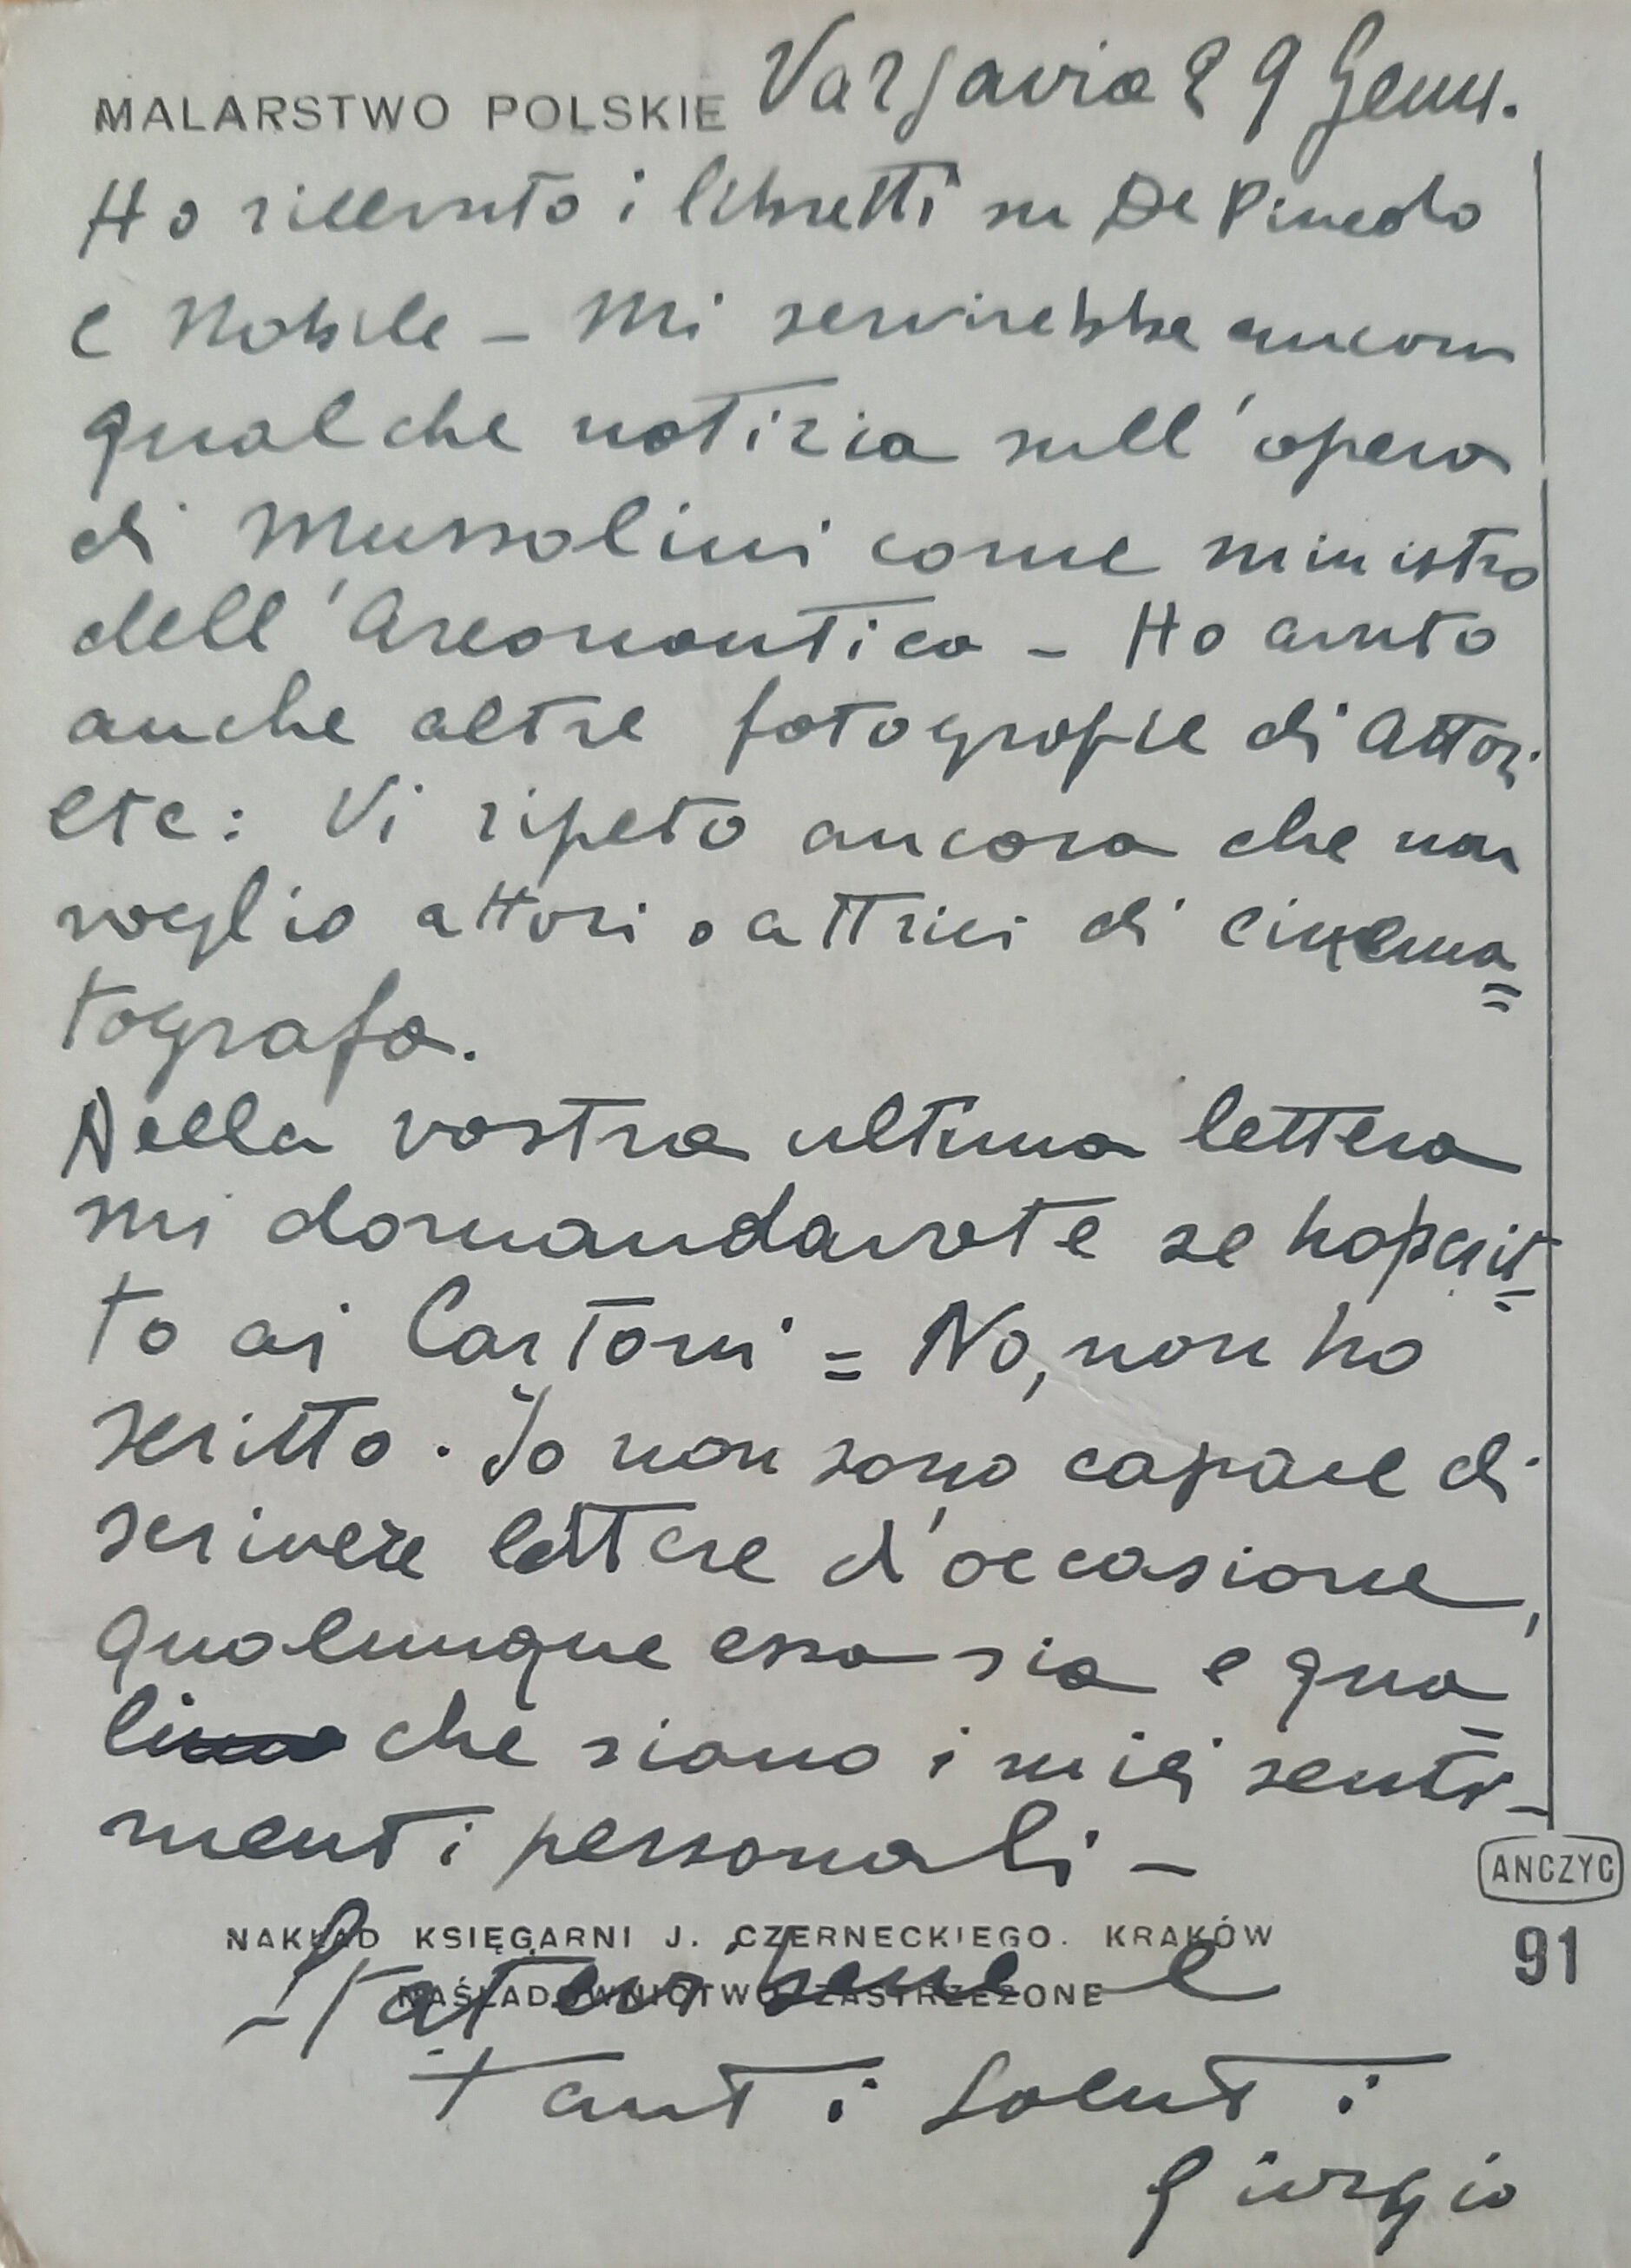 MALARSTWO POLSKIE Varsavia 29 Genn.
Ho ricevuto i libretti su De Pinedo
e Nobile - Mi servirebbe ancora
qualche notizia sull'opera
di Mussolini come ministro
dell'Areonautica - Ho avuto
anche altre fotografie di Attori
etc: Vi ripeto ancora che non
voglio attori o attrici di cinema=
tografo.
Nella vostra ultima lettera
mi domandavate se ho scrit=
to ai Cartoni = No, non ho
scritto. Io non sono capace di
scrivere lettere d'occasione,
qualunque essa sia e qua=
li che siano i miei senti-
menti personali -
NAKŁAD KSIĘGARNI J. CZERNECKIEGO. KRAKÓW
NAŚLADOWNICTWO ZASTRZEŻONE
ANCZYC
91
Statevi bene e
tanti saluti
Giorgio